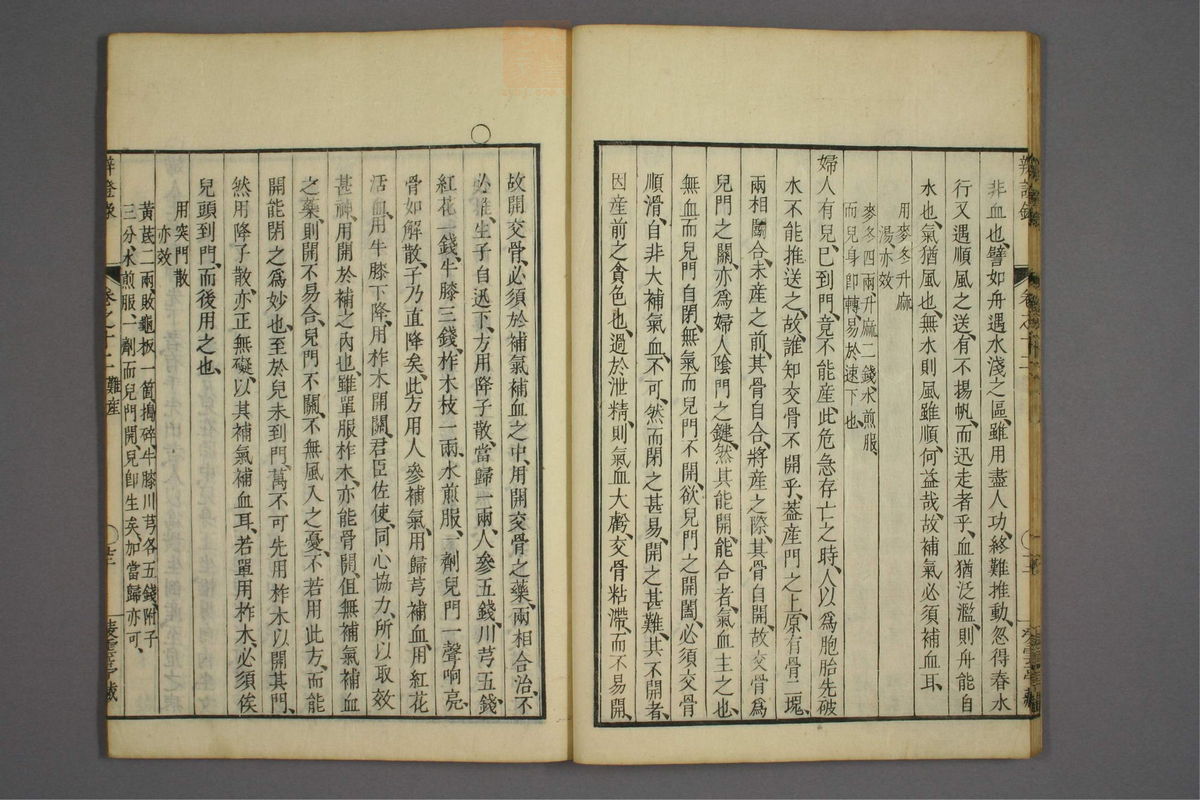 非血也、譬如舟遇水淺之區、雖用盡人功、終難推動、忽得春水
行、又遇順風之送、有不揚帆、而迅走者乎、血猶泛濫、則舟能自
水也、氣猶風也、無水則風雖順、何益哉、故補氣必須補血耳、
用麥冬升麻
湯、亦效
麥冬四兩、升麻二錢、水煎服、
而兒身卽轉、易於速下也、
婦人有兒、已到門、竟不能產、此危急存亡之時、人以爲胞胎先破
水不能推送之、故誰知交骨不開乎、蓋產門之上、原有骨二塊、
兩相鬭合、未產之前、其骨自合、將產之際、其骨自開、故交骨爲
兒門之關、亦爲婦人陰門之鍵、然其能開、能合者、氣血主之也、
無血而兒門自閉、無氣而兒門不開、欲兒門之開闔、必須交骨
順滑、自非大補氣血不可、然而閉之甚易、開之甚難、其不開者、
因產前之貪色也、過於泄精、則氣血大虧、交骨粘滯、而不易開、
故開交骨、必須於補氣補血之中、用開交骨之藥、兩相合治、不
必催生、子自迅下、方用降子散、當歸一兩、人參五錢、川芎五錢、
紅花一錢、牛膝三錢、柞木枝一兩、水煎服、一劑兒門一聲响亮、
骨如解散、子乃直降矣、此方用人參補氣、用歸芎補血、用紅花
活血、用牛膝下降、用柞木開關、君臣佐使、同心協力、所以取效
甚神、用開於補之內也、雖單服柞木、亦能骨開、但無補氣補血
之藥、則開不易合、兒門不關、不無風入之憂、不若用此方、而能
開能閉之爲妙也、至於兒未到門、萬不可先用柞木以開其門、
然用降子散、亦正無礙、以其補氣補血耳、若單用柞木、必須俟
兒頭到門、而後用之也、
用突門散
亦效
黃芪二兩、敗龜板一箇、搗碎、牛膝川芎各五錢、附子
三分、水煎服、一劑而兒門開、兒卽生矣、加當歸亦可、
辨證錄 卷之十二 難產